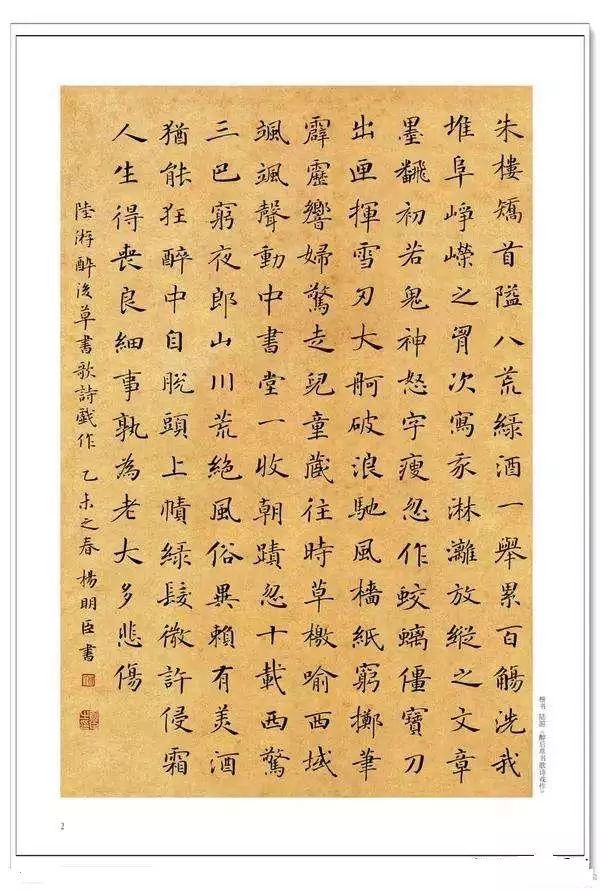 朱樓矯首隘八荒綠酒一舉累百觴洗我
堆阜崢嶸之胷次寫為淋漓放縱之文章
墨翻初若鬼神怒字瘦忽作蛟螭僵寶刀
出匣揮雪刃大舸破浪馳風檣紙窮擲筆
霹靂響婦驚走兒童藏往時草檄喻西域
颯颯聲動中書堂一收朝蹟忽十載西驚
三巴窮夜郎山川荒絕風俗異賴有美酒
猶能狂醉中自脫頭上幘綠髮微許侵霜
人生得喪良細事孰為老大多悲傷
陸游醉後草書歌詩戲作 乙未之春 楊明臣書
楷书 陆游《醉后草书歌诗戏作》
2